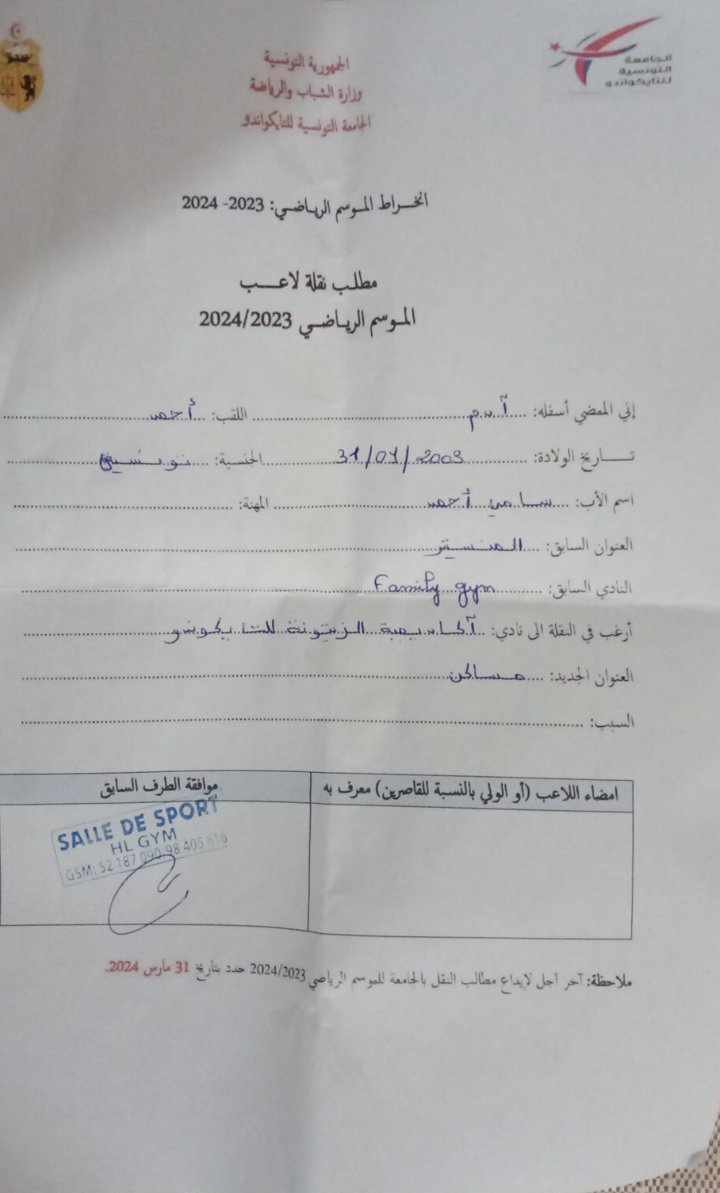 الجمهورية التونسية
وزارة الشباب والرياضة
الجامعة التونسية للتايكواندو
الجامعة
التونسية
للتايكواندو
انخراط الموسم الرياضي: 2023- 2024
مطلب نقلة لاعب
الموسم الرياضي 2024/2023
إني الممضي أسفله: آدم اللقب: أحمد
تاريخ الولادة: 31/07/2009 الجنسية: تونسية
اسم الأب: سامي أحمد المهنة:
العنوان السابق: المنستير
النادي السابق: Family gym
أرغب في النقلة الى نادي: آكاديمية الزيتونة للتايكوندو
العنوان الجديد: مساكن
السبب:
امضاء اللاعب (أو الولي بالنسبة للقاصرين) معرف به
موافقة الطرف السابق
SALLE DE SPORT
HL GYM
GSM: 52 187 090-98 405
ملاحظة: آخر أجل لإيداع مطالب النقل بالجامعة للموسم الرياضي 2024/2023 حدد بتاريخ 31 مارس 2024.